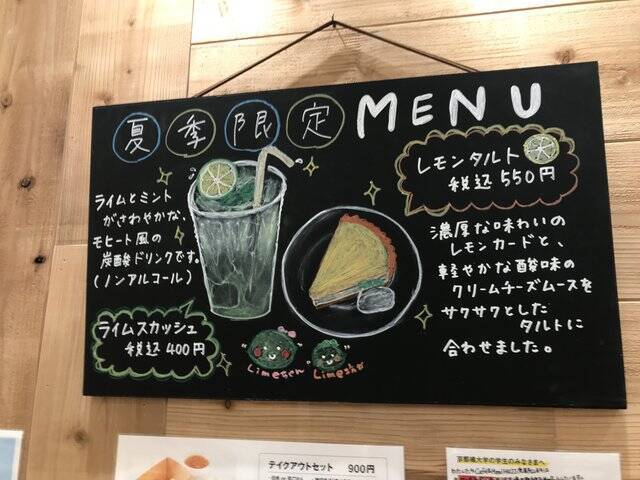 夏季限定 MENU
レモンタルト
税込 550円
ライムとミント
がさわやかな、
モヒート風の
炭酸ドリンクです。
(ノンアルコール)
ライムスカッシュ
税込 400円
濃厚な味わいの
レモンカードと、
軽やかな酸味の
クリームチーズムースを
サクサクとした
タルトに
合わせました。
テイクアウトセット 900円
京都橘大学の学生のみなさまへ